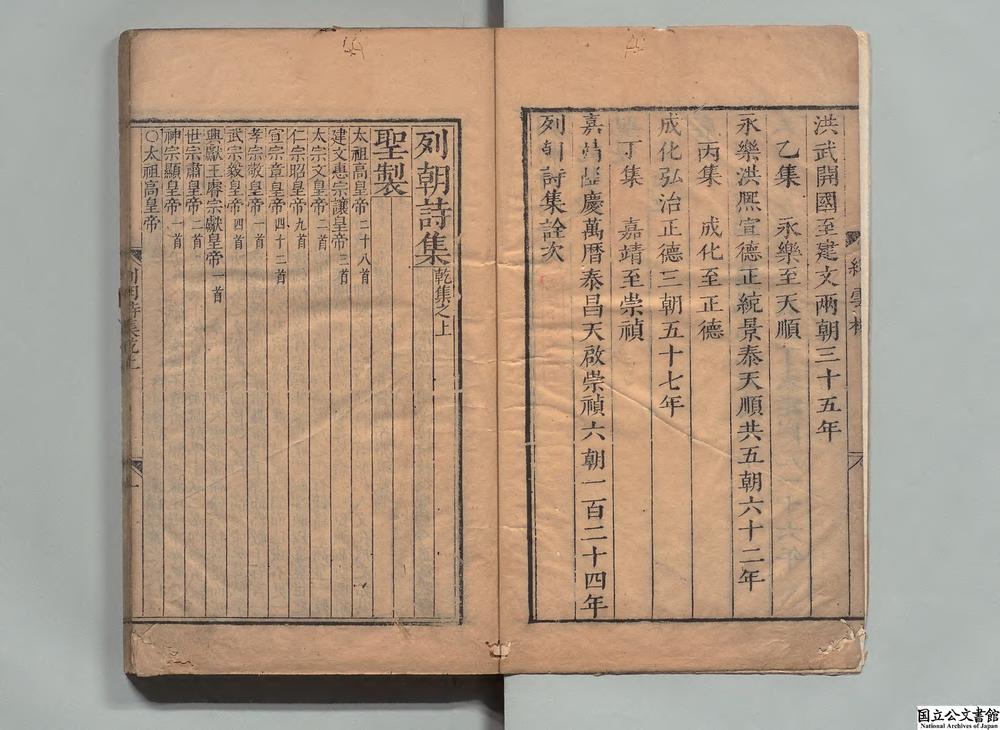 洪武開國至建文兩朝三十五年
乙集　永樂至天順
永樂洪熙宣德正統景泰天順共五朝六十二年
丙集　成化至正德
成化弘治正德三朝五十七年
丁集　嘉靖至崇禎
嘉靖隆慶萬曆泰昌天啟崇禎六朝一百二十四年
列朝詩集詮次
列朝詩集乾集之上
聖製
太祖高皇帝二十八首
建文惠宗讓皇帝三首
太宗文皇帝二首
仁宗昭皇帝九首
宣宗章皇帝四十二首
孝宗敬皇帝一首
武宗毅皇帝四首
興獻王睿宗獻皇帝一首
世宗肅皇帝二首
神宗顯皇帝一首
○太祖高皇帝
国立公文書館
National Archives of Japan